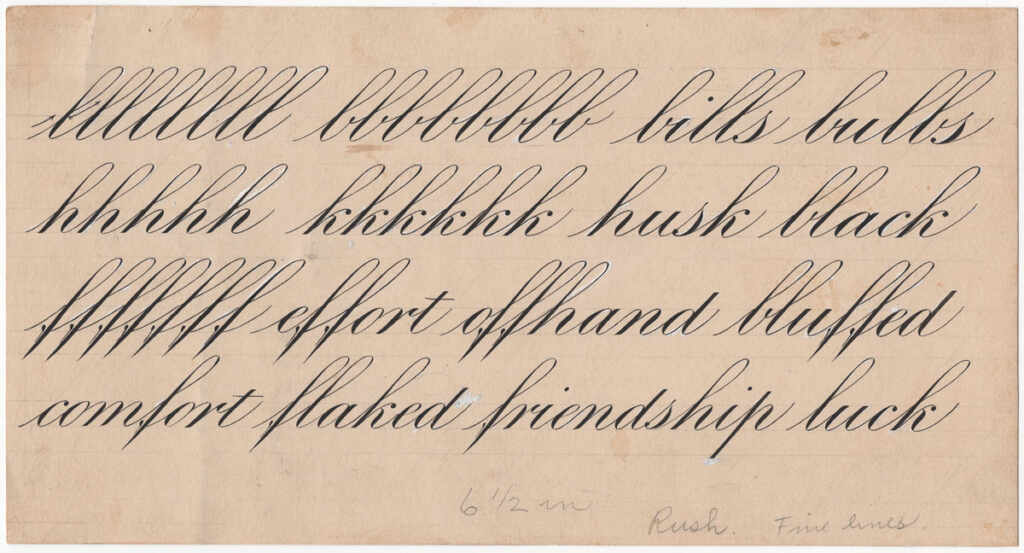 lllllllll bbbbbbbb bills bulbs
hhhhh kkkkkk husk black
fffffff effort offhand bluffed
comfort flaked friendship luck
6 1/2 in
Rush. Fine lines.